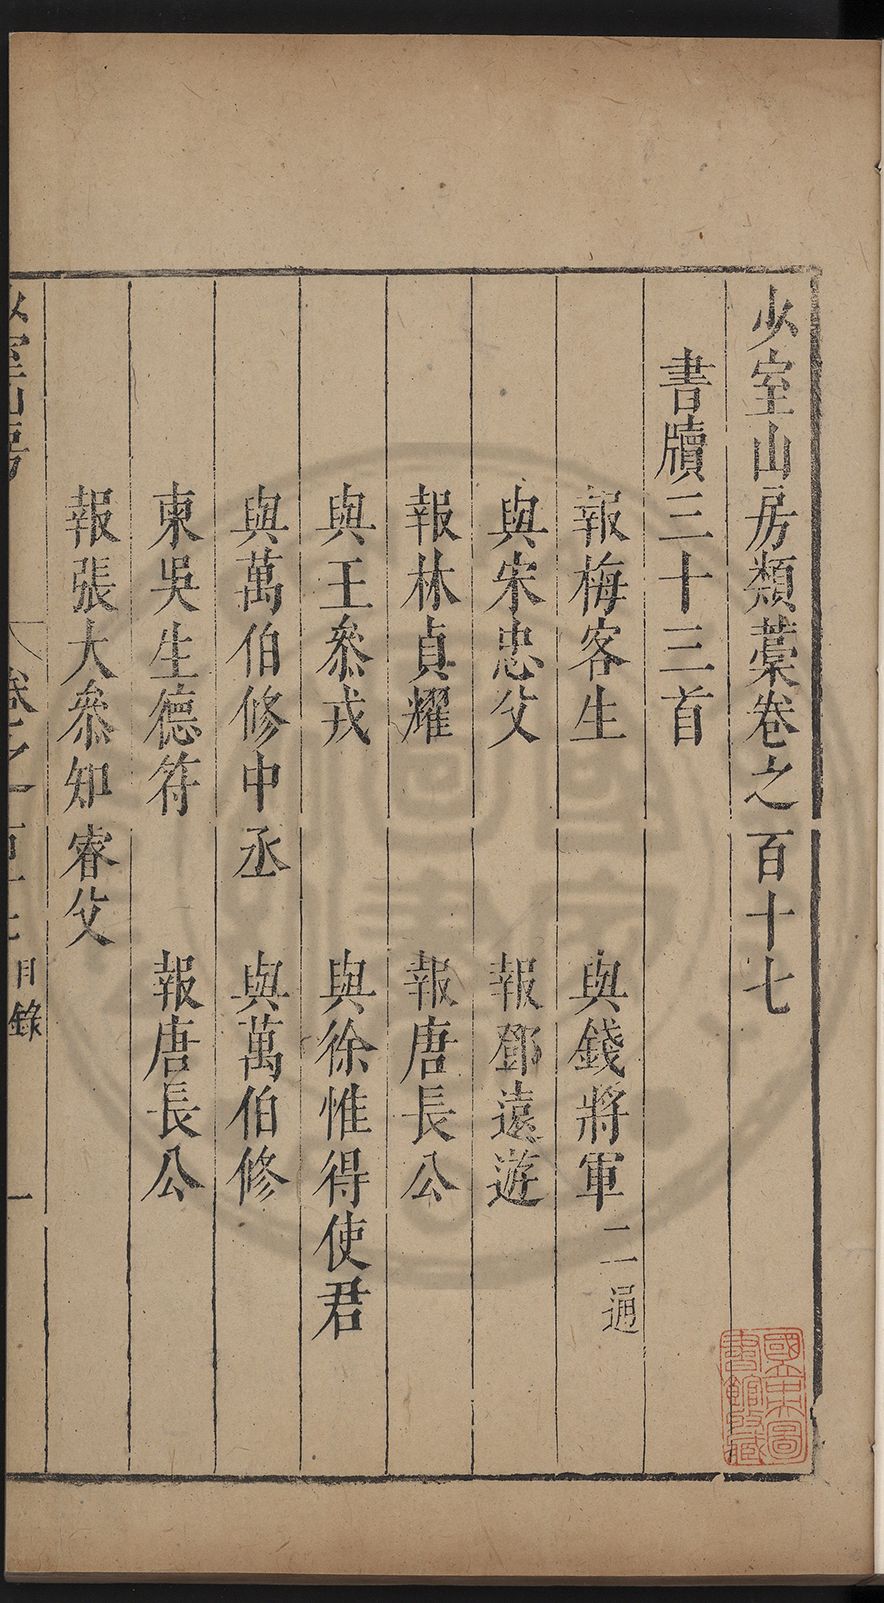 少室山房類藁卷之一百十七
書牘三十三首
報梅客生 與錢將軍二通
與宋忠父 報鄧遠遊
報林貞耀 報唐長公
與王叅戎 與徐惟得使君
與萬伯修中丞 與萬伯修
柬吳生德符 報唐長公
報張大叅知睿父
少室山房 卷之一百十七目錄 一
國立中央圖書館收藏